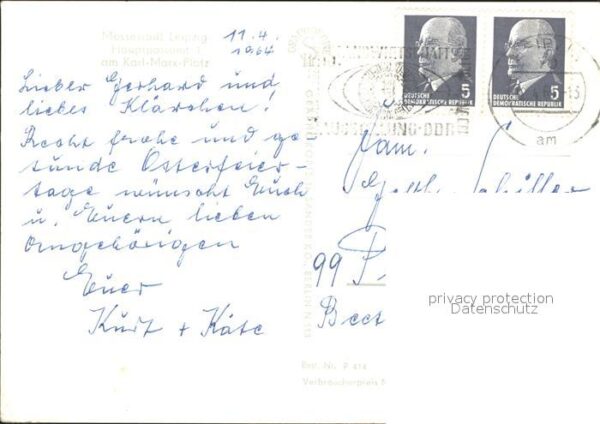 Messestadt Leipzig
Hauptpostamt 1
am Karl-Marx-Platz
11.4.
1964
Lieber Gerhard und
liebes Klärchen!
Recht frohe und ge-
sunde Osterfeier-
tage wünscht Euch
u. Euern lieben
Angehörigen
Euer
Kurt + Käte
DEUTSCHE
DEMOKRATISCHE REPUBLIK
5
DEUTSCHE
DEMOKRATISCHE REPUBLIK
5
LANDWIRTSCHAFTS
AUSSTELLUNG·DDR
am
Fam.
Schiller
99 P
Beet
privacy protection
Datenschutz
Best. Nr. P 414
Verbraucherpreis